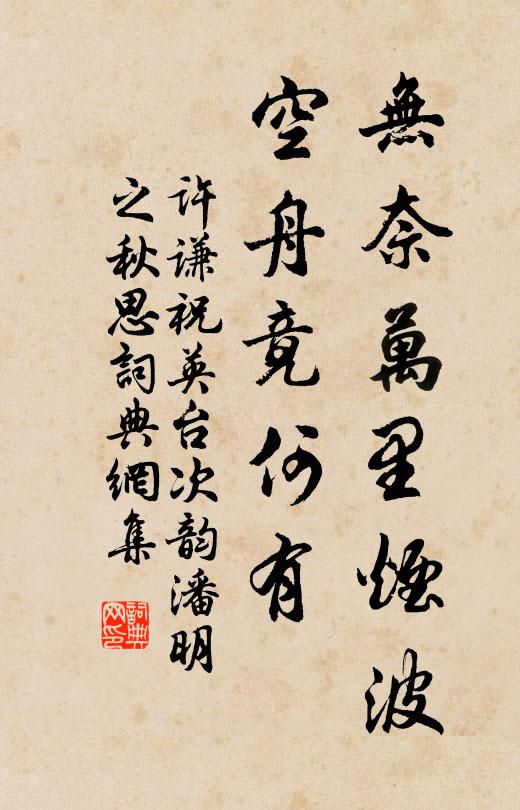 無奈萬里煙波
空舟竟何有
許謙祝英台次韵潘明
之秋思詞典網集
詞典
网印